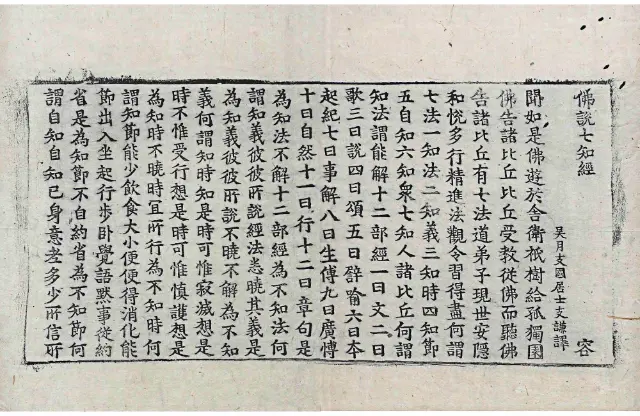 佛說七知經
吳月支國居士支謙譯
容
聞如是佛遊於舍衛祇樹給孤獨園
佛告諸比丘比丘受教從佛而聽佛
告諸比丘有七法道弟子現世安隱
和悅多行精進法觀令習得盡何謂
七法一知法二知義三知時四知節
五自知六知衆七知人諸比丘何謂
知法謂能解十二部經一曰文二曰
歌三曰說四曰頌五曰譬喻六曰本
起紀七曰事解八曰生傳九曰廣博
十曰自然十一曰行十二曰章句是
為知法不解十二部經為不知法何
謂知義彼彼所說經法悉曉其義是
為知義彼彼所說不曉不解為不知
義何謂知時知是時可惟寂滅想是
時不惟受行想是時可惟慎護想是
為知時不曉時宜所行為不知時何
謂知節能少飲食大小便便得消化能
節出入坐起行步臥覺語默事從約
省是為知節不自約省為不知節何
謂自知自知己身意老多少所信所